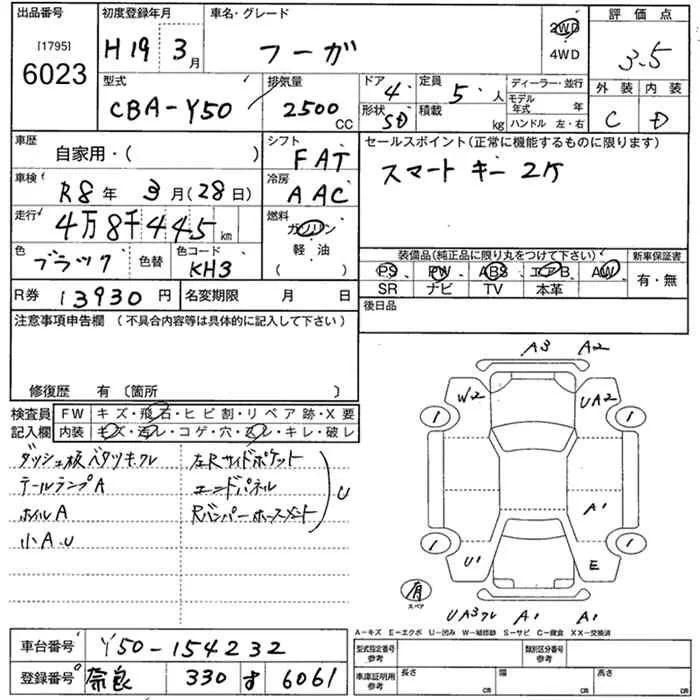 出品番号
[1795]
6023
初度登録年月
H19 3月
車名・グレード
フーガ
2WD
4WD
評価点
3.5
型式
CBA-Y50
排気量
2500 CC
ドア 4
形状 SD
定員 5人
積載 kg
ディーラー・並行
モデル年式 年
ハンドル 左・右
外装 内装
C D
車歴
自家用・( )
シフト
FAT
車検
R8年 3月(28日)
冷房
AAC
走行 4万8千445km
燃料
ガソリン
軽油
( )
色 ブラック 色替
色コード KH3
R券 13930円
名変期限 月 日
セールスポイント(正常に機能するものに限ります)
スマートキー 2ケ
装備品(純正品に限り丸をつけて下さい)
新車保証書
PS PW ABS エアB AW
SR ナビ TV 本革
有・無
後日品
注意事項申告欄 (不具合内容等は具体的に記入して下さい)
修復歴 有 〔箇所 〕
検査員記入欄
FW キズ・飛石・ヒビ割・リペア跡・X要
内装 キズ・汚レ・コゲ・穴・スレ・キレ・破レ
ダッシュ板ベタツキ.クレ
テールランプA
ホイルA
小A.U
左Rサイドポケット
エンドパネル
Rバンパーホースメント
U
A3 A2
W2
UA2
1
1
A1
1
1
U1
E
有
スペア
UA3クレ A1 A1
A-キズ E-エクボ U-凹み W-補修跡 S-サビ C-腐食 XX-交換済
車台番号 Y50-154232
登録番号 奈良 330 す 6061
型式指定番号 参考
類別区分番号 参考
車庫証明用 参考
長さ cm
幅 cm
高さ cm